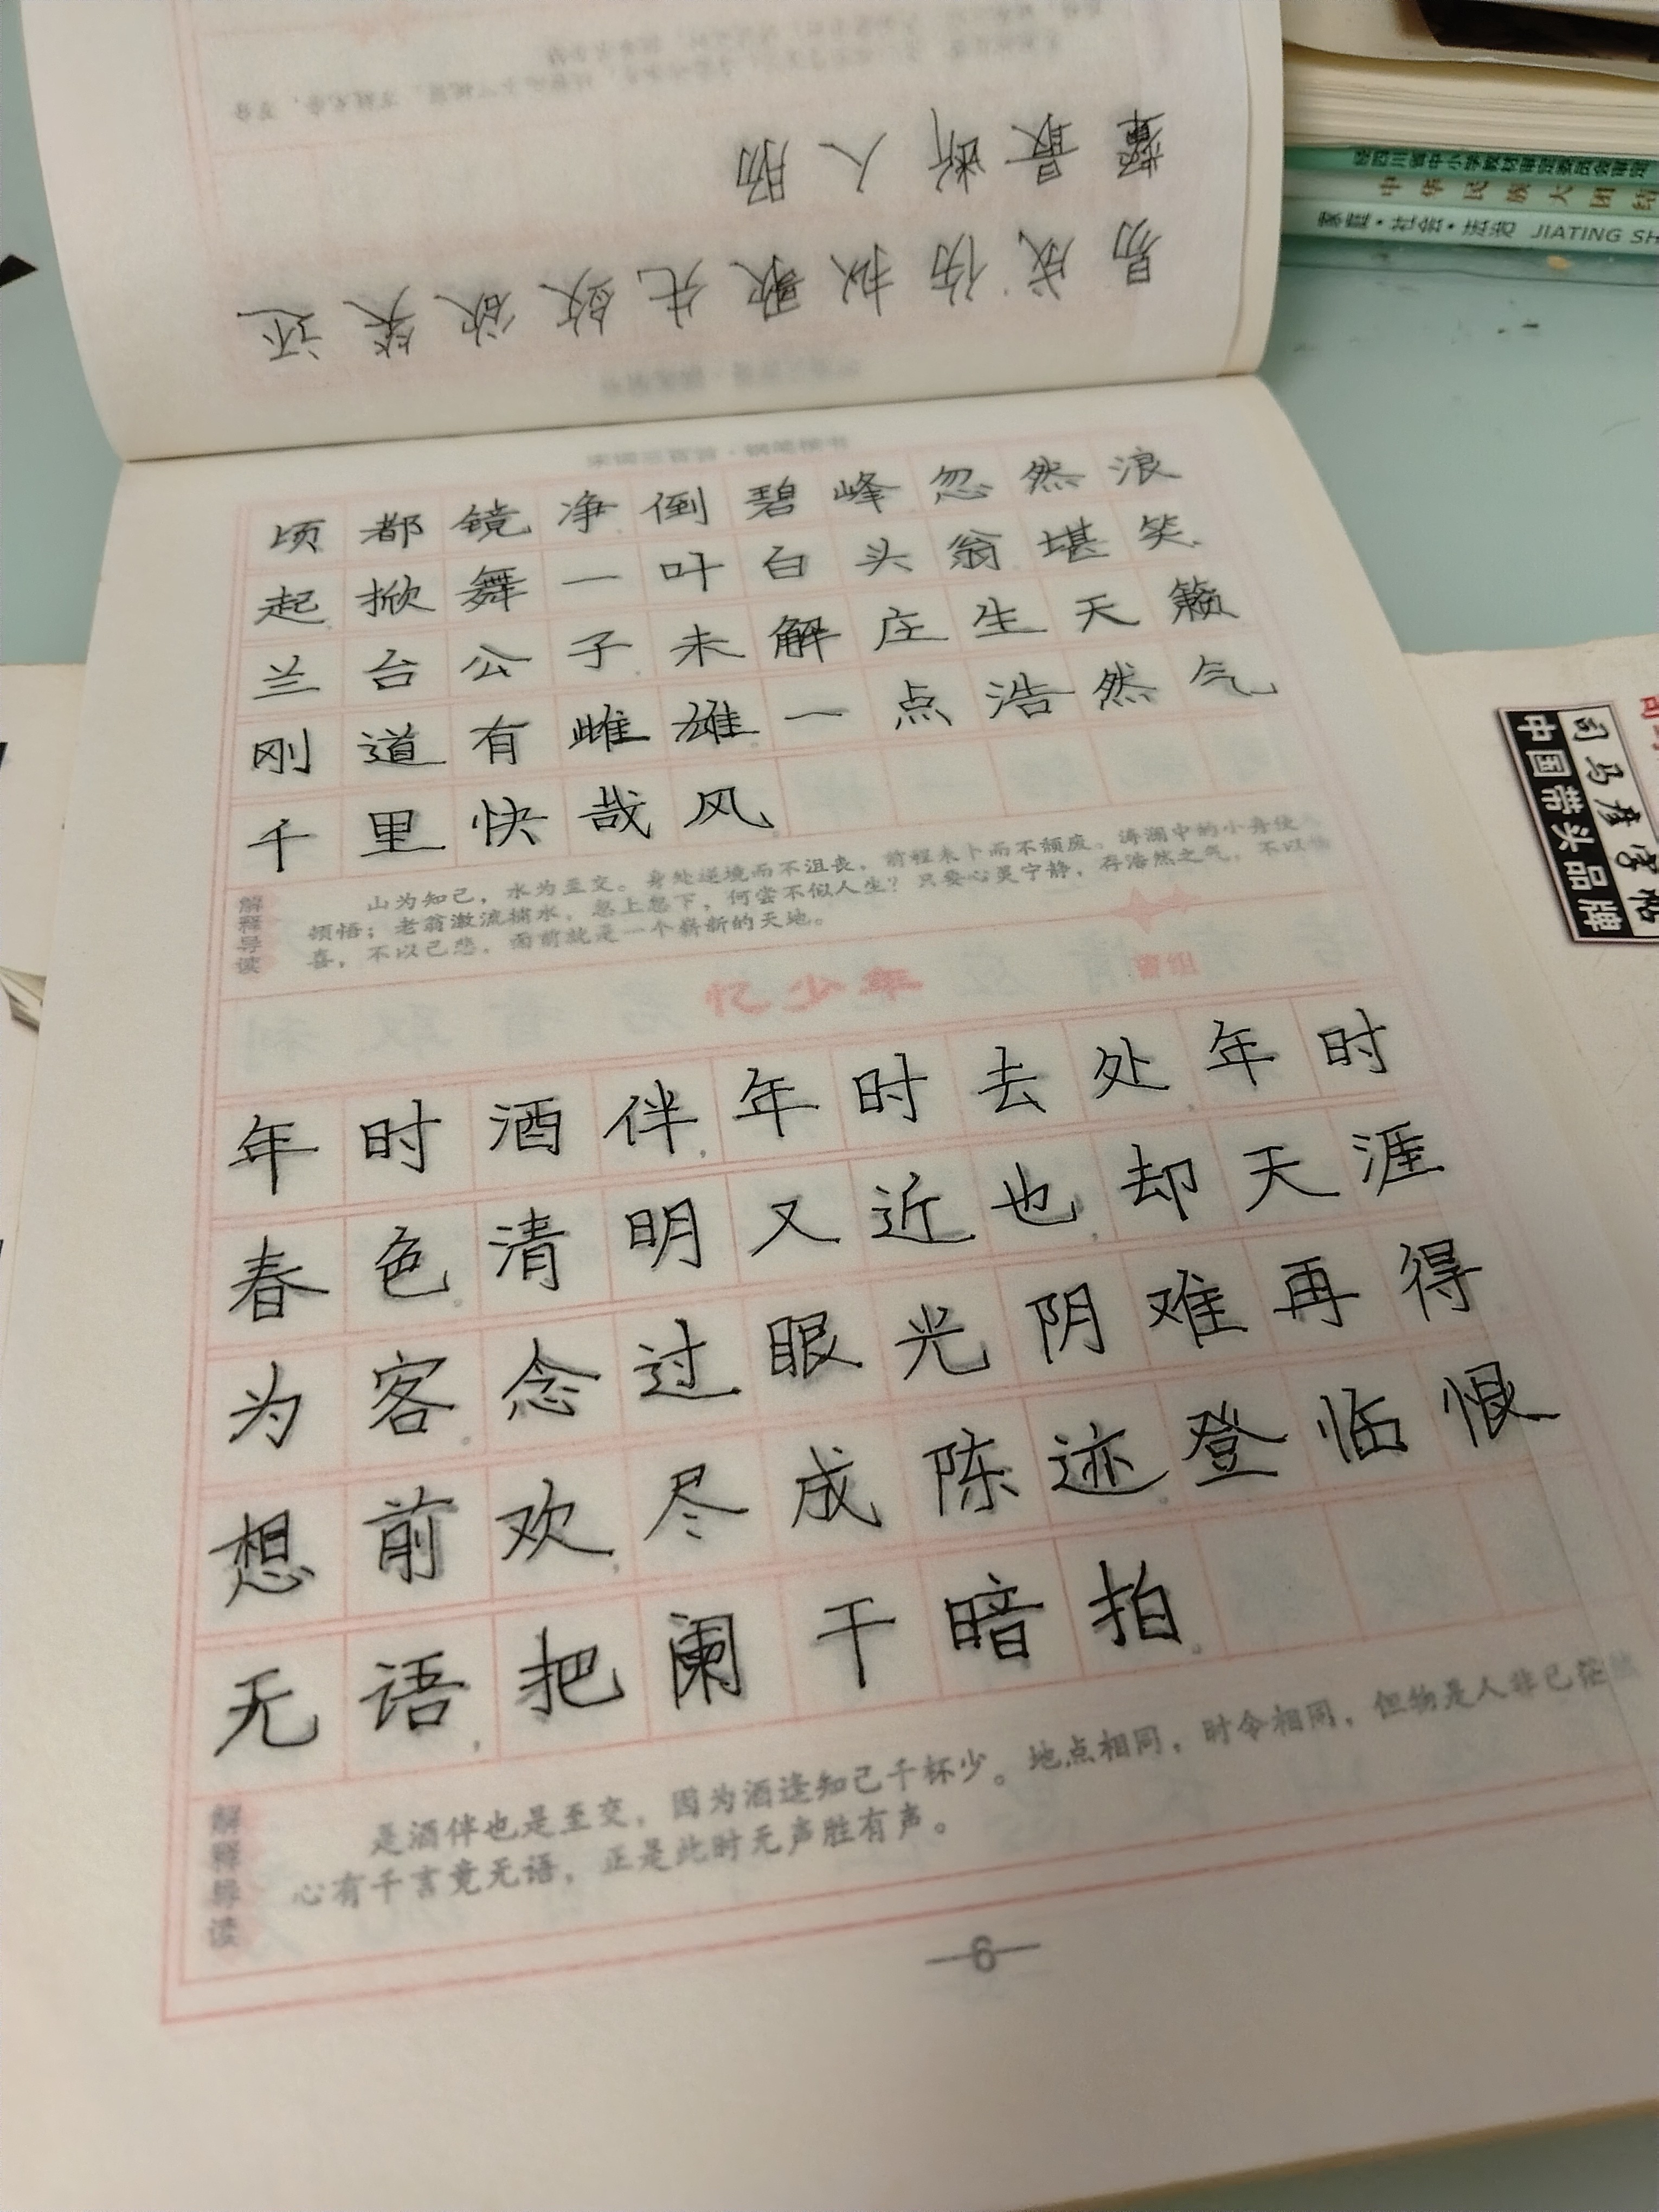 易成伤拟歌先敛欲笑还
颦最断人肠
顷都镜净倒碧峰忽然浪
起掀舞一叶白头翁堪笑
兰台公子未解庄生天籁
刚道有雌雄一点浩然气
千里快哉风
解释导读
山为知己，水为至交。身处逆境而不沮丧，前程未卜而不颓废。涛澜中的小舟使人
顿悟；老翁激流搏水，忽上忽下，何尝不似人生？只要心灵宁静，存浩然之气，不以物
喜，不以己悲，面前就是一个崭新的天地。
忆少年
曹组
年时酒伴，年时去处，年时
春色。清明又近也，却天涯
为客。念过眼光阴难再得
想前欢，尽成陈迹。登临恨
无语，把阑干暗拍。
解释导读
是酒伴也是至交，因为酒逢知己千杯少。地点相同，时令相同，但物是人非已茫然
心有千言竟无语，正是此时无声胜有声。
6
经四川省中小学教材审定委员会审定
中华民族大团结
家庭·社会·法治 JIATING SH
司马彦字帖
中国带头品牌